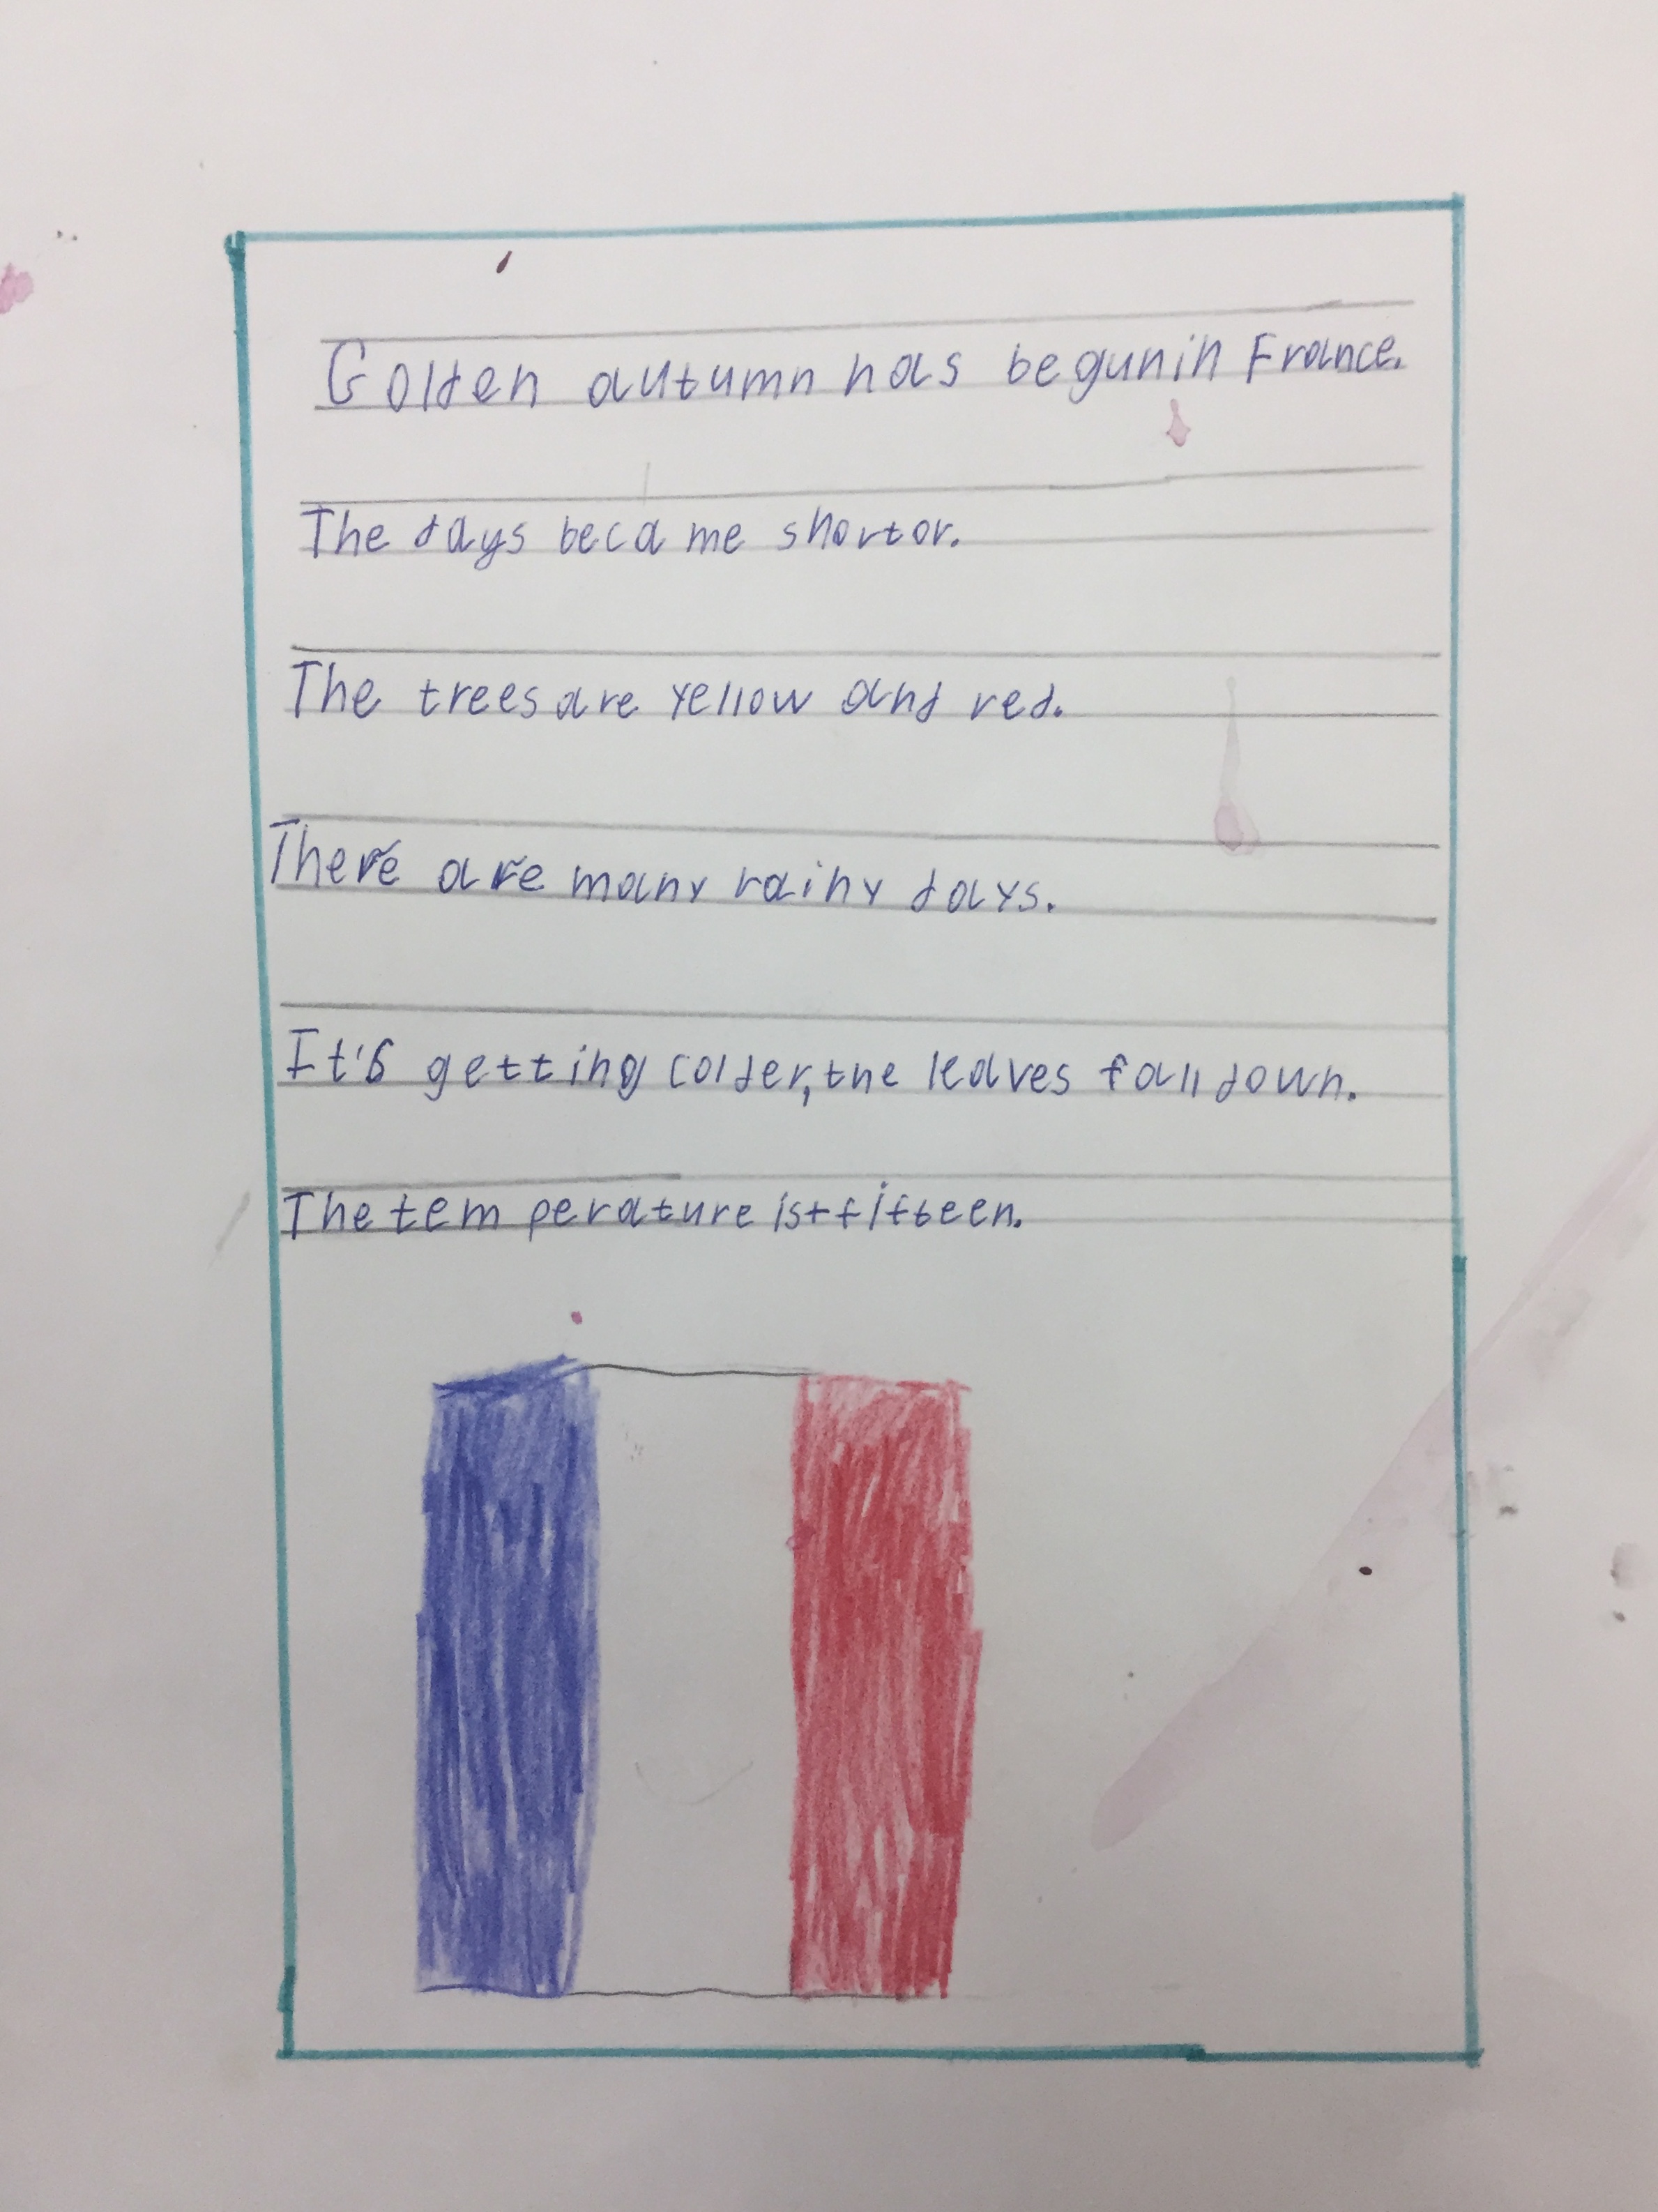 Golden autumn has begunin France.
The days became shortor.
The trees are yellow and red.
There are many rainy days.
It's getting colder, the leaves fall down.
The temperature is +fifteen.